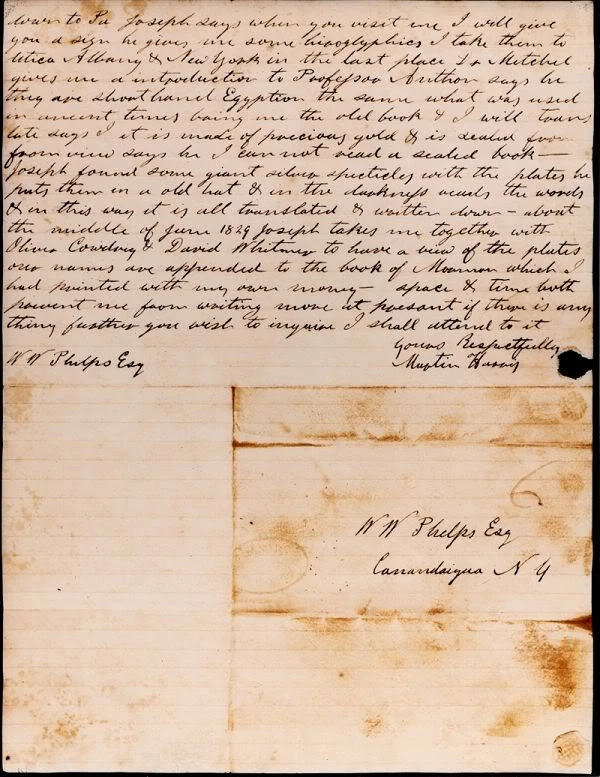 down to Pa Joseph says when you visit me I will give
you a sign he gives me some hiroglyphics I take them to
Utica Albany & New York in the last place Dr Mitchel
gives me a introduction to Professor Anthon says he
they are short hand Egyption the same what was used
in ancient times bring me the old book & I will trans
late says I it is made of precious gold & is sealed from
from view says he I can not read a sealed book—
Joseph found some giant silver specticles with the plates he
puts them in a old hat & in the darkness reads the words
& in this way it is all translated & written down — about
the middle of June 1829 Joseph takes me together with
Oliver Cowdrey & David Whitmer to have a view of the plates
our names are appended to the book of Mormon which I
had printed with my own money — space & time both
prevent me from writing more at present if there is any
thing further you wish to inquire I shall attend to it
Yours Respectfully
W W Phelps Esq
Martin Harris
6
W W Phelps Esq
Canandaigua N Y